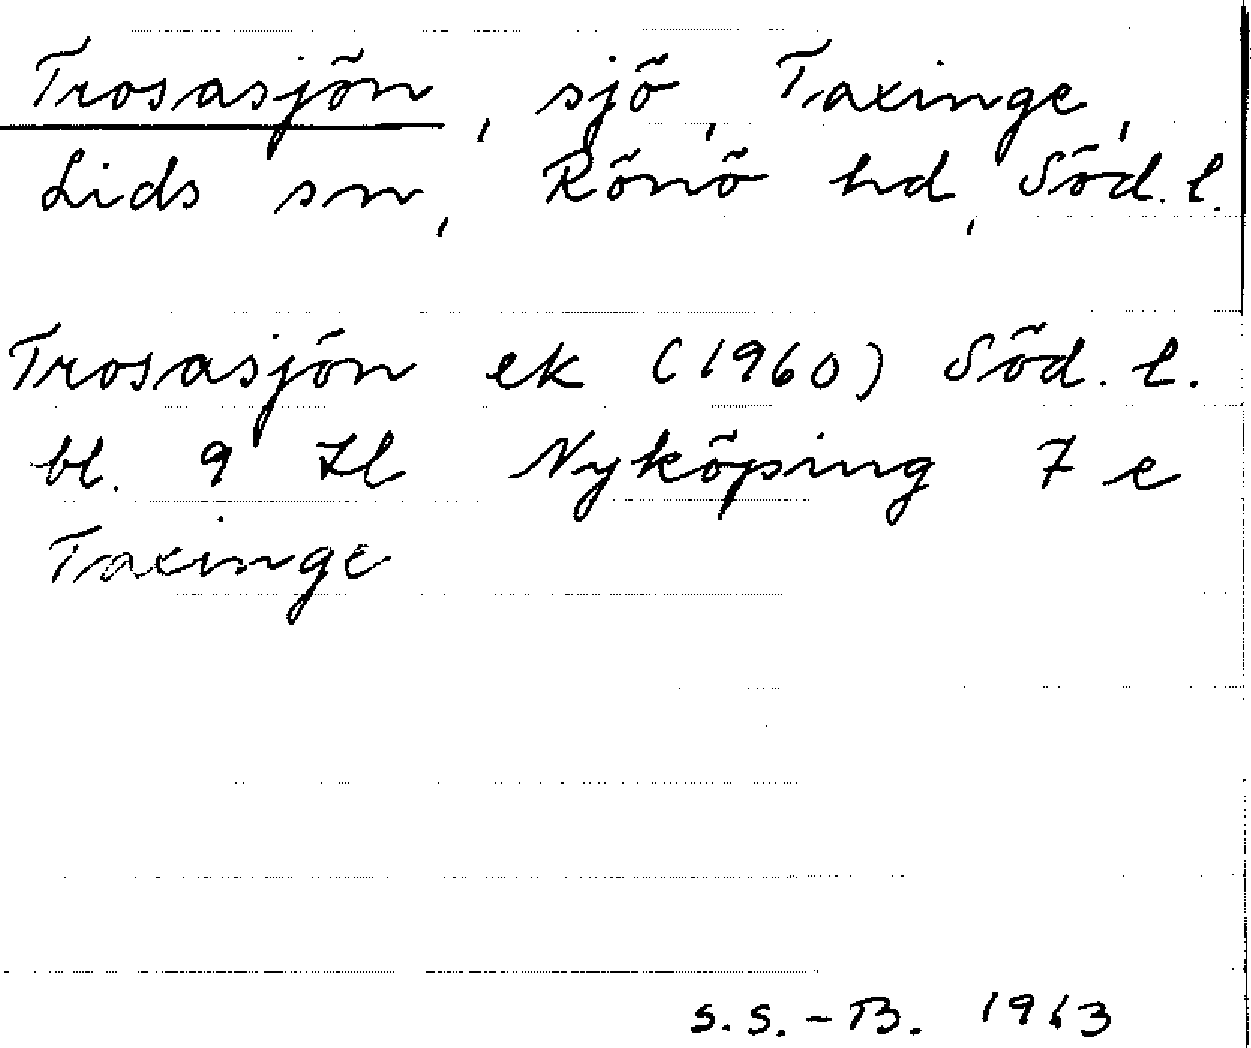 Trosasjön, sjö, Taxinge,
Lids sn, Rönö hd, Söd. l.
Trosasjön ek (1960) Söd. l.
bl. 9 Nyköping 7 e
Taxinge
S.S.-B. 1963